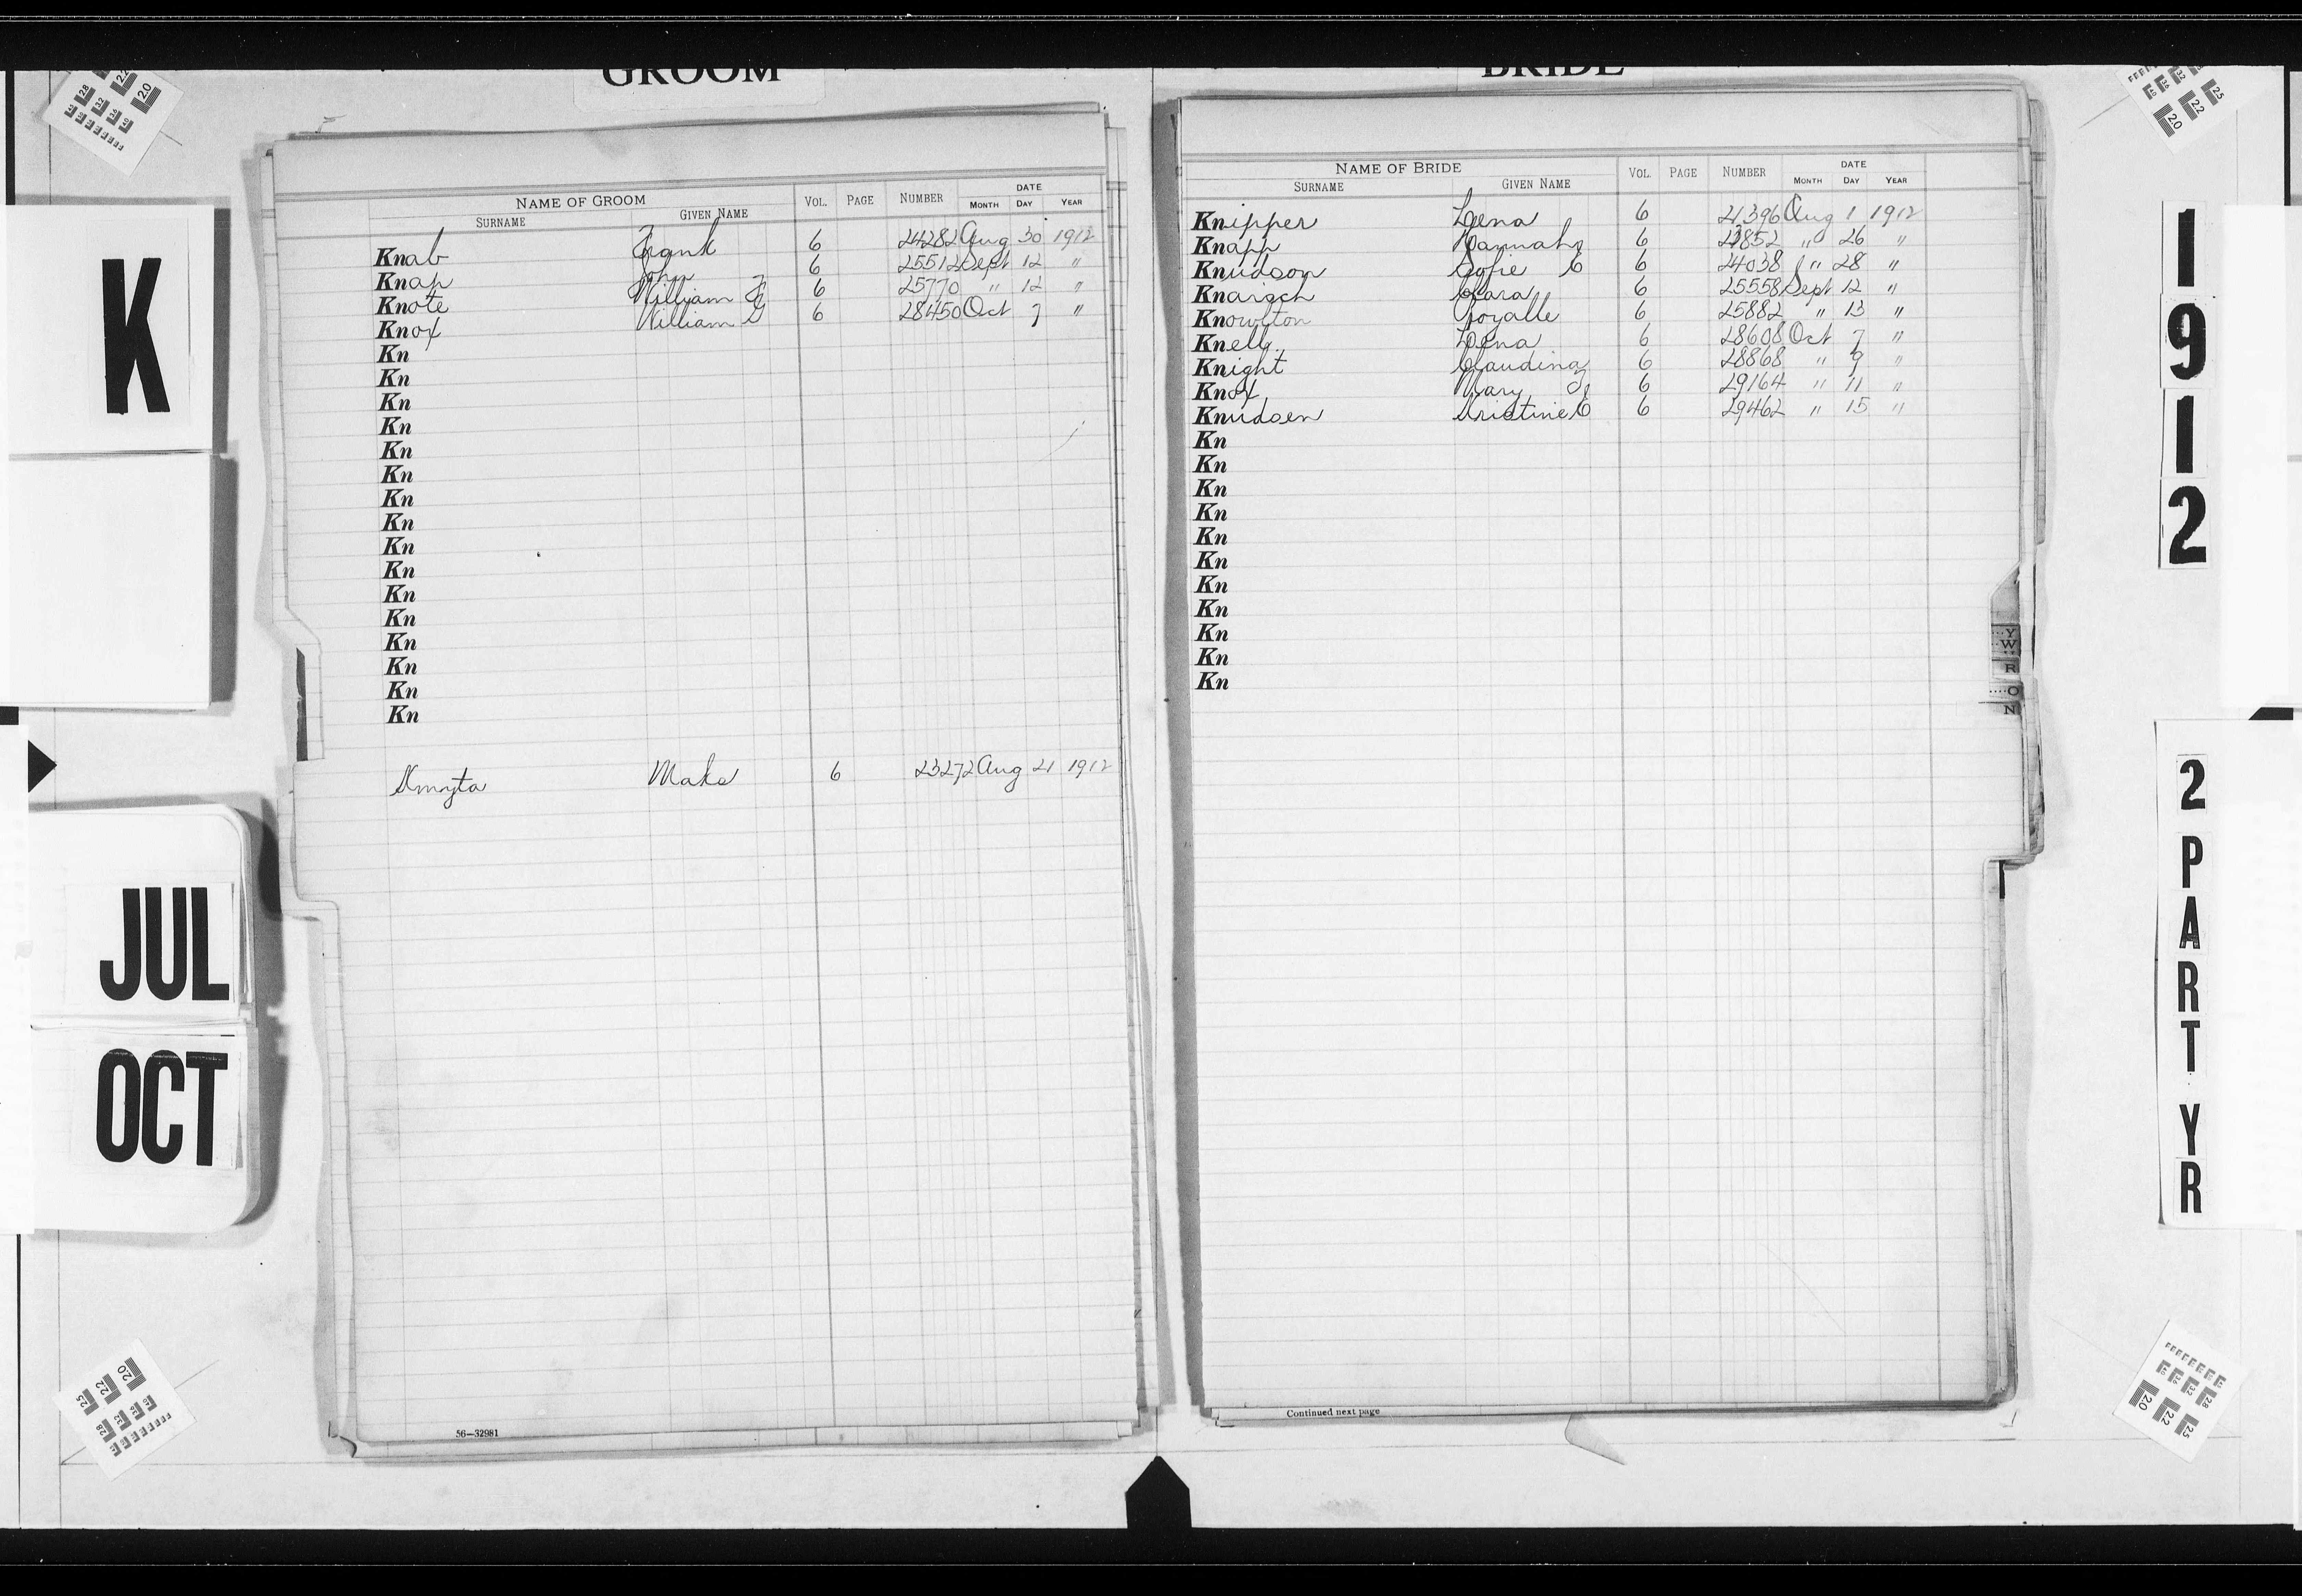 GROOM
BRIDE
K
JUL
OCT
1912
2 PART YR
NAME OF GROOM
SURNAME GIVEN NAME VOL. PAGE NUMBER DATE MONTH DAY YEAR
Knab Frank 6 24282 Aug 30 1912
Knap John 6 25512 Sept 12 "
Knote William F 6 25770 " 12 "
Knox William G 6 28450 Oct 7 "
Kn
Kn
Kn
Kn
Kn
Kn
Kn
Kn
Kn
Kn
Kn
Kn
Kn
Kn
Kn
Kn
Kmyta Maks 6 23272 Aug 21 1912
56—32981
NAME OF BRIDE
SURNAME GIVEN NAME VOL. PAGE NUMBER DATE MONTH DAY YEAR
Knipper Lena 6 21396 Aug 1 1912
Knapp Hannah 6 23852 " 26 "
Knudson Sofie C 6 24038 " 28 "
Knaisch Clara 6 25558 Sept 12 "
Knowlton 6 25882 " 13 "
Knell Lena 6 28608 Oct 7 "
Knight Claudina 6 28868 " 9 "
Knox Mary J 6 29164 " 11 "
Knudsen Kristine C 6 29462 " 15 "
Kn
Kn
Kn
Kn
Kn
Kn
Kn
Kn
Kn
Kn
Kn
Y
W
R
O
N
Continued next page